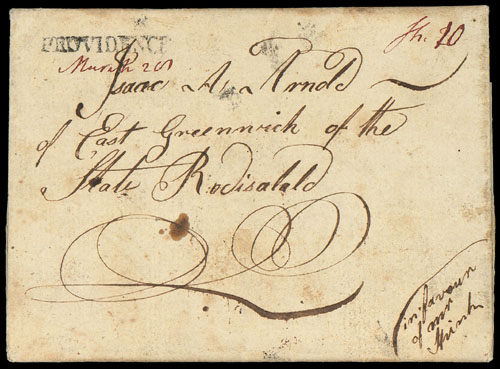 PROVIDENCE
Sh. 20
March 20
Isaac A. Arnold
of East Greenwich of the
State Rodisalald
in favour
of mr